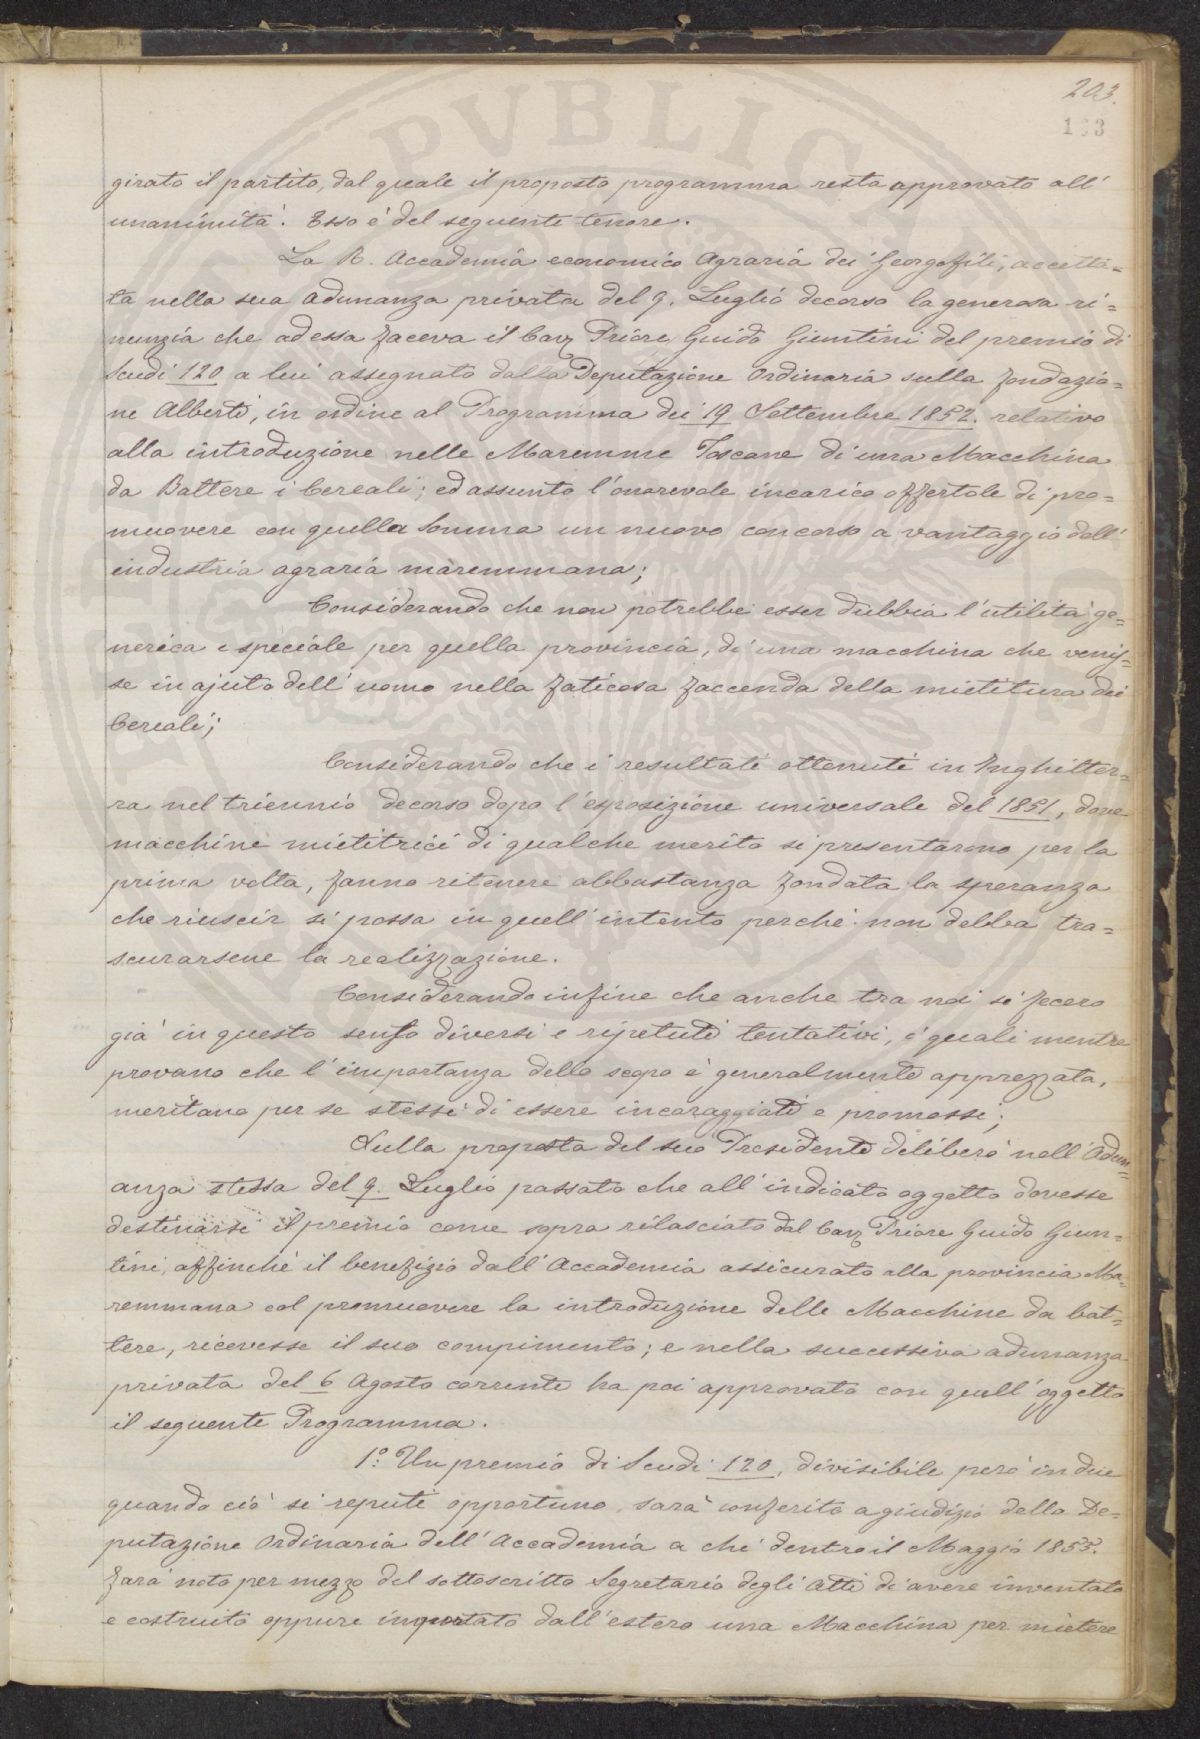 203.
163
girato il partito, dal quale il proposto programma resta approvato all'
unanimità. Esso è del seguente tenore.
La R. Accademia economico Agraria dei Georgofili, accetta=
ta nella sua adunanza privata del 9. Luglio decorso la generosa ri=
nunzia che ad essa faceva il Cav. Priore Guido Giuntini del premio di
Scudi 120 a lui assegnato dalla Deputazione Ordinaria sulla fondazio=
ne Alberti, in ordine al Programma dei 19 Settembre 1852. relativo
alla introduzione nelle Maremme Toscane di una Macchina
da Battere i Cereali; ed assunto l'onorevole incarico offertole di pro=
muovere con quella Somma un nuovo concorso a vantaggio dell'
industria agraria maremmana;
Considerando che non potrebbe esser dubbia l'utilità ge=
nerica e speciale per quella provincia, di una macchina che venis=
se in ajuto dell'uomo nella faticosa faccenda della mietitura dei
Cereali;
Considerando che i resultati ottenuti in Inghilter=
ra nel triennio decorso dopo l'esposizione universale del 1851, dove
macchine mietitrici di qualche merito si presentarono per la
prima volta, fanno ritenere abbastanza fondata la speranza
che riuscir si possa in quell'intento perchè non debba tra=
scurarsene la realizzazione.
Considerando infine che anche tra noi si fecero
già in questo senso diversi e ripetuti tentativi, i quali mentre
provano che l'importanza dello scopo è generalmente apprezzata,
meritano per se stessi di essere incoraggiati e promossi;
Sulla proposta del suo Presidente deliberò nell'Adun=
anza stessa del 9. Luglio passato che all'indicato oggetto dovesse
destinarsi il premio come sopra rilasciato dal Cav. Priore Guido Giun=
tini, affinchè il benefizio dall'Accademia assicurato alla provincia Ma=
remmana col promuovere la introduzione delle Macchine da bat=
tere, ricevesse il suo compimento; e nella successiva adunanza
privata del 6 Agosto corrente ha poi approvato con quell'oggetto
il seguente Programma.
1º. Un premio di Scudi 120, divisibile però in due
quando ciò si reputi opportuno, sarà conferito a giudizio della De=
putazione Ordinaria dell'Accademia a chi dentro il Maggio 1855.
farà noto per mezzo del sottoscritto Segretario degli Atti di avere inventato
e costruito oppure importato dall'estero una Macchina per mietere